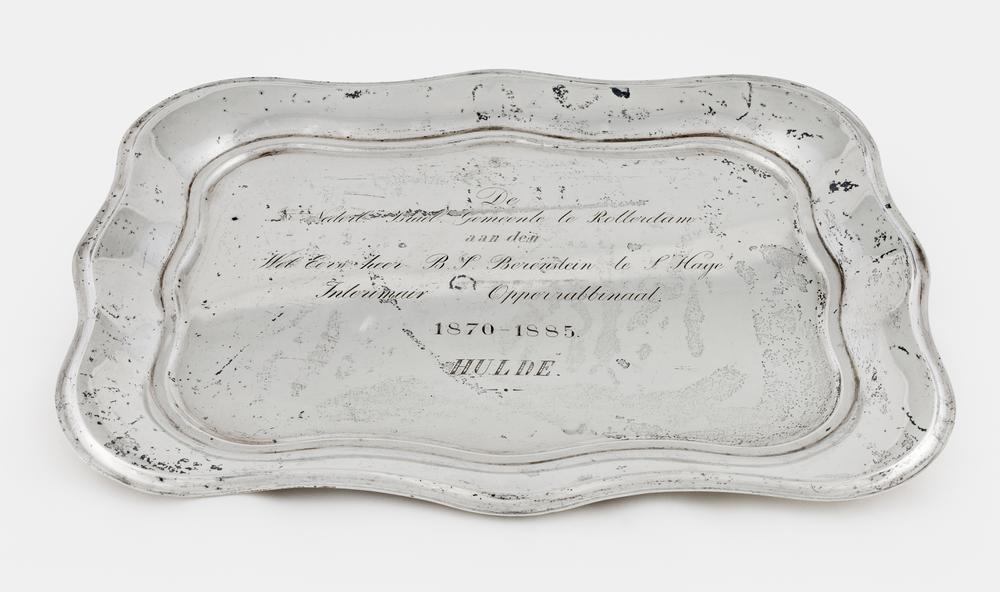 De
Nederl. Israel. Gemeente te Rotterdam
aan den
Wel Eerw. heer B. S. Berenstein te S'Hage
Interimair Opperrabbinaat.
1870-1885.
HULDE.